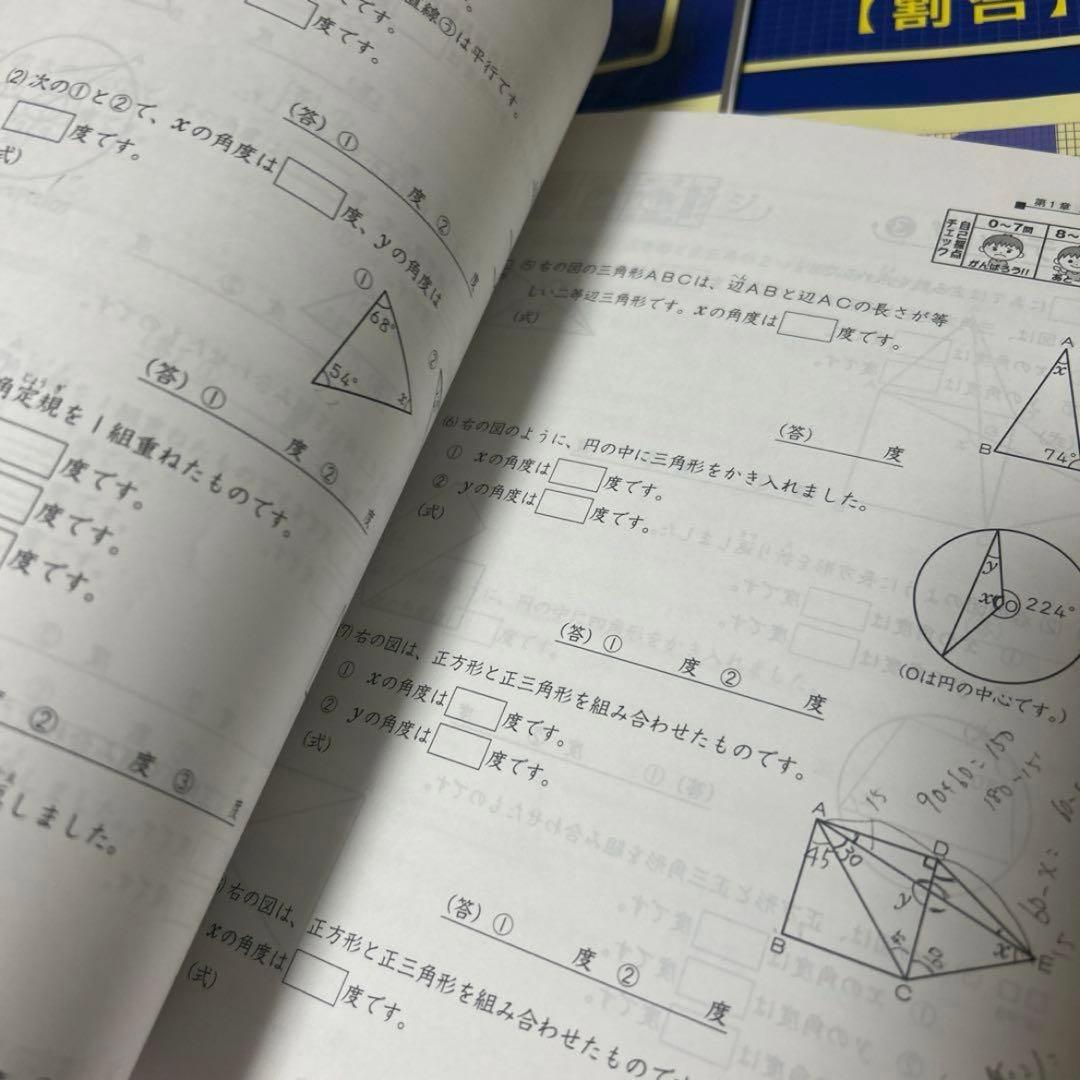 【割合】
直線③は平行です。
度です。
(答) ① 度 ② 度
(2) 次の①と②で、xの角度は 度、yの角度は
度です。
式)
① 68° 54° x
②
(答) ① 度 ② 度
角定規を1組重ねたものです。
じょうぎ
度です。
度です。
度です。
② 度 ③ 度
しました。
■ 第1章
自己採点
チェック
0〜7問
がんばろう!!
8〜
あと
(5) 右の図の三角形ABCは、辺ABと辺ACの長さが等
しい二等辺三角形です。xの角度は 度です。
(式)
A
x
B
74°
(答) 度
(6) 右の図のように、円の中に三角形をかき入れました。
① xの角度は 度です。
② yの角度は 度です。
(式)
y
x O 224°
(Oは円の中心です。)
(答) ① 度 ② 度
(7) 右の図は、正方形と正三角形を組み合わせたものです。
① xの角度は 度です。
② yの角度は 度です。
(式)
15
180-15
60-x=
A
45 30
D
y
B
x
E
C
(答) ① 度 ② 度
右の図は、正方形と正三角形を組み合わせたものです
xの角度は 度です。
(式)